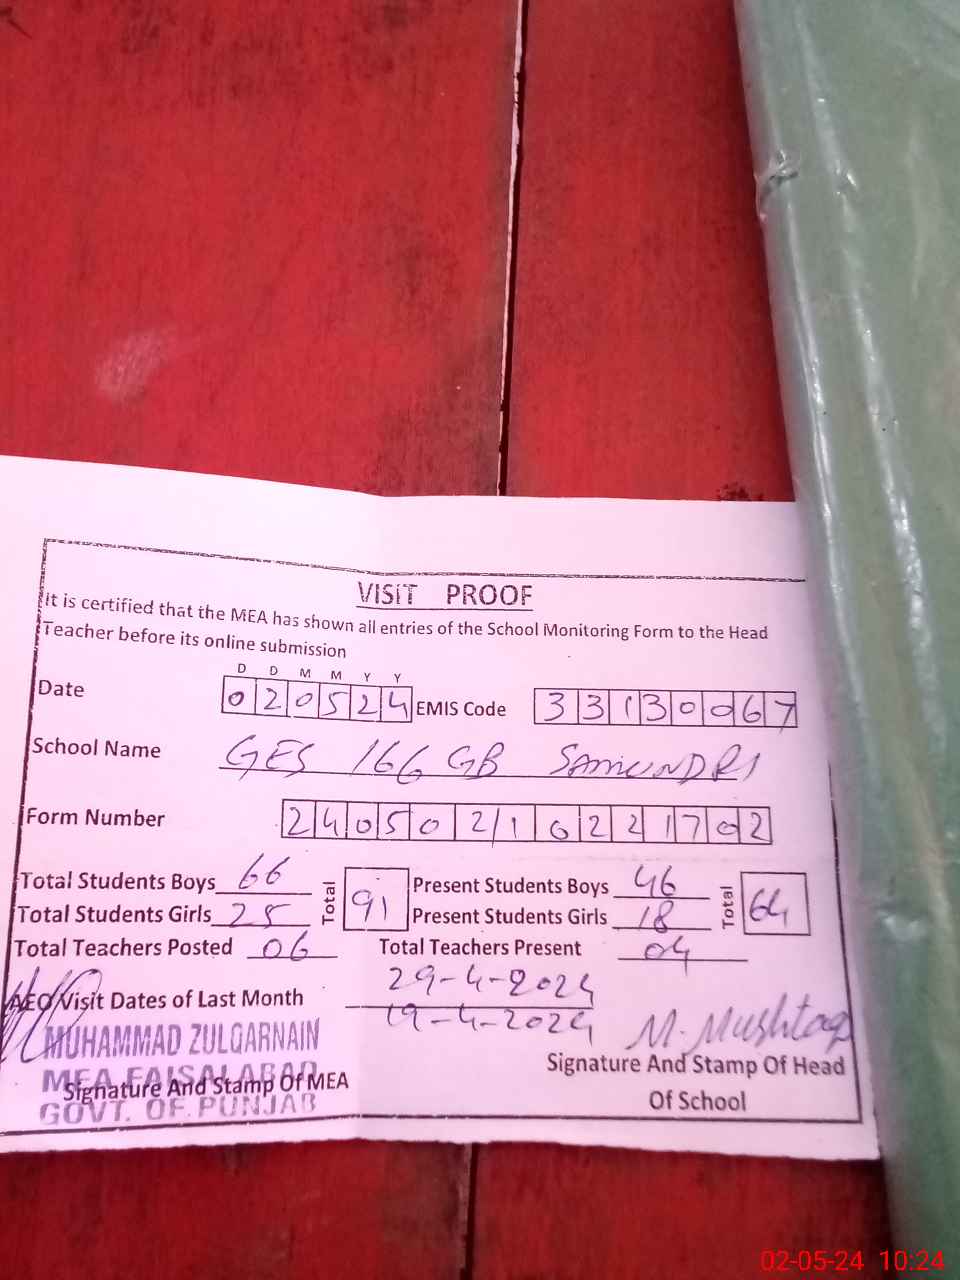 VISIT PROOF
It is certified that the MEA has shown all entries of the School Monitoring Form to the Head
Teacher before its online submission
D D M M Y Y
Date 020524 EMIS Code 33130067
School Name GES 166 GB SAMUNDRI
Form Number 24050 2/1622 1702
Total Students Boys 66 Total 91 Present Students Boys 46 Total 64
Total Students Girls 25 Present Students Girls 18
Total Teachers Posted 06 Total Teachers Present 04
AEO Visit Dates of Last Month 29-4-2024
19-4-2024
MUHAMMAD ZULQARNAIN M. Mushtaq
MEA FAISALABAD
Signature And Stamp Of MEA Signature And Stamp Of Head
GOVT. OF PUNJAB Of School
02-05-24 10:24